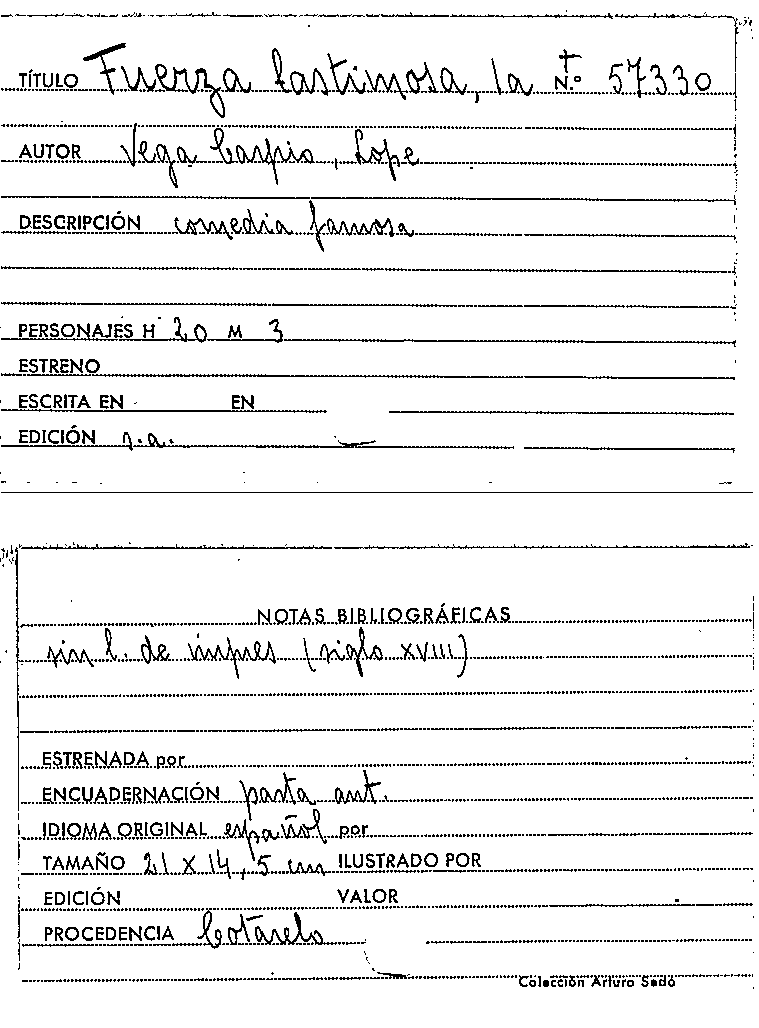 TÍTULO Fuerza lastimosa, la N.º 57330
AUTOR Vega Carpio, Lope
DESCRIPCIÓN comedia famosa
PERSONAJES H 20 M 3
ESTRENO
ESCRITA EN EN
EDICIÓN s.a.
NOTAS BIBLIOGRÁFICAS
sin l. de impres (siglo XVIII)
ESTRENADA por
ENCUADERNACIÓN pasta ant.
IDIOMA ORIGINAL español por
TAMAÑO 21 X 14,5 cm ILUSTRADO POR
EDICIÓN VALOR
PROCEDENCIA Cotarelo
Colección Arturo Sedó